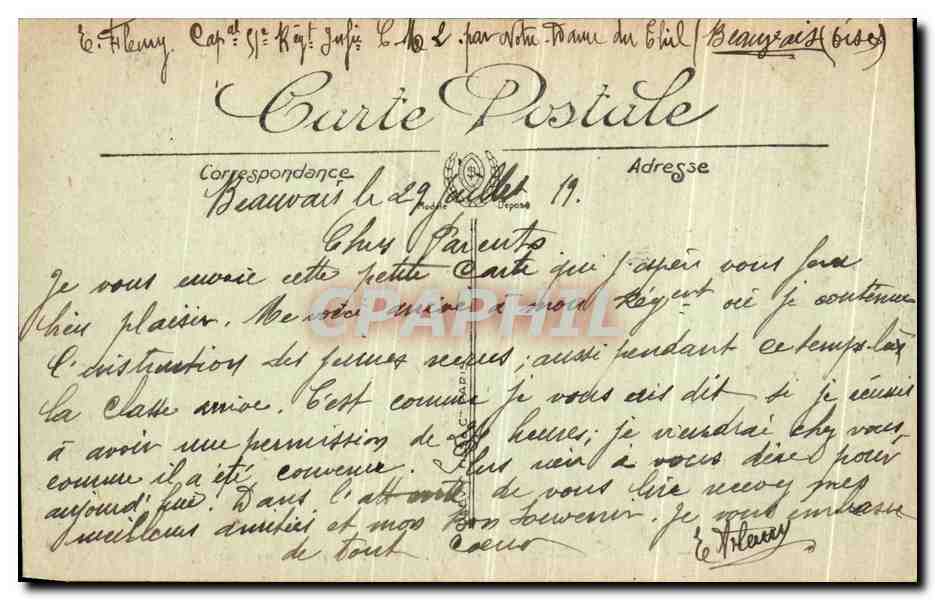 Cap^al 51^e Rég^t Inf^ie C M 2 par Notre-Dame du Thil (Beauvais (Oise)
Carte Postale
Correspondance
Adresse
Modèle Déposé
Beauvais le 29 Juillet 19.
Chers Parents
Je vous envoie cette petite Carte qui j'espère vous fera
bien plaisir. Me voici arrivé à mon Rég^ent où je continue
l'instruction des jeunes recrues; aussi pendant ce temps-là
la classe arrive. C'est comme je vous ais dit si je réussis
à avoir une permission de 24 heures; je viendrai chez vous,
comme il a été convenu. Plus rien à vous dire pour
aujourd'hui. Dans l'attente de vous lire recevez mes
meilleurs amitiés et mon bon souvenir. Je vous embrasse
de tout Coeur
CPAPHIL
PARIS